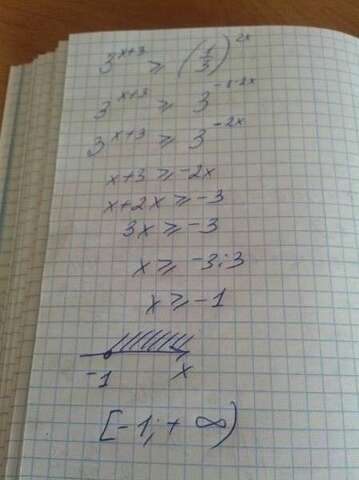 3^(x+3) ≥ (1/3)^(2x)
3^(x+3) ≥ 3^(-1·2x)
3^(x+3) ≥ 3^(-2x)
x+3 ≥ -2x
x+2x ≥ -3
3x ≥ -3
x ≥ -3:3
x ≥ -1
-1 x
[-1; +∞)